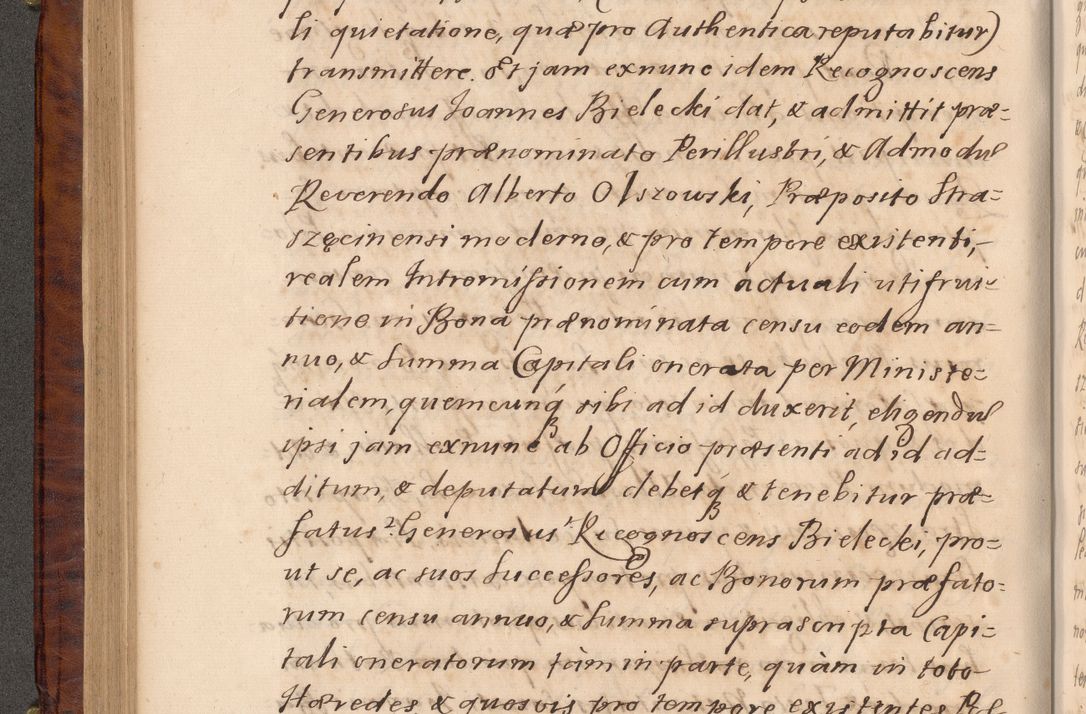 li quietatione, quæ pro Authentica reputabitur)
transmittere. Et jam exnunc idem Recognoscens
Generosus Joannes Bielecki dat, & admittit præ=
sentibus prænominato Perillustri, & Admodū
Reverendo Alberto Olszowski, Præposito Stra=
szęcinensi moderno, & pro tempore existenti,
realem Intromissionem cum actuali utifrui=
tione in Bona prænominata censu eodem an=
nuo, & summa Capitali onerata per Ministe=
rialem, quemcunq́ sibi ad id duxerit, eligendū
ipsi jam exnunc ab Officio præsenti ad id ad=
ditum, & deputatum debetq́ & tenebitur præ=
fatus Generosus Recognoscens Bielecki, pro=
ut se, ac suos Successores, ac Bonorum præfato=
rum censu annuo, & summa suprascripta Capi=
tali oneratorum tàm in parte, quàm in toto
Hæredes & quosvis pro tempore existentes